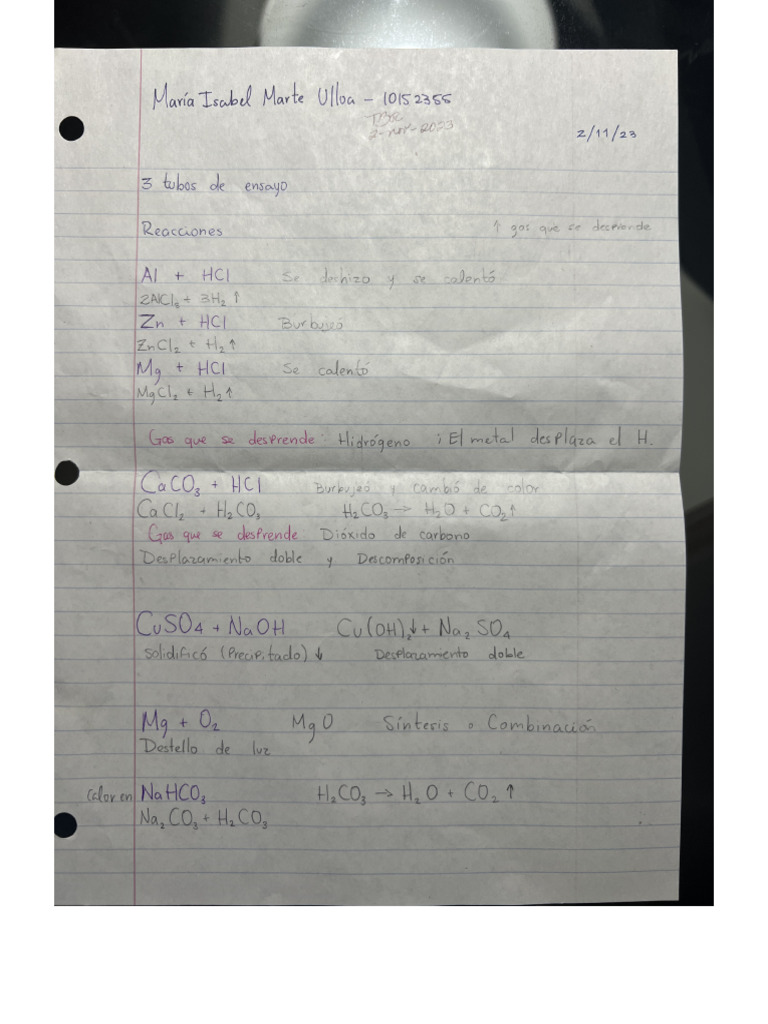 María Isabel Marte Ulloa - 10152355
2-nov-2023
2/11/23
3 tubos de ensayo
Reacciones ↑ gas que se desprende
Al + HCl Se deshizo y se calentó
2AlCl₃ + 3H₂ ↑
Zn + HCl Burbujeó
ZnCl₂ + H₂ ↑
Mg + HCl Se calentó
MgCl₂ + H₂ ↑
Gas que se desprende: Hidrógeno ; El metal desplaza el H.
CaCO₃ + HCl Burbujeó y cambió de color
CaCl₂ + H₂CO₃ H₂CO₃ → H₂O + CO₂ ↑
Gas que se desprende Dióxido de carbono
Desplazamiento doble y Descomposición
CuSO₄ + NaOH Cu(OH)₂↓ + Na₂SO₄
Solidificó (Precipitado) ↓ Desplazamiento doble
Mg + O₂ MgO Síntesis o Combinación
Destello de luz
Calor en NaHCO₃ H₂CO₃ → H₂O + CO₂ ↑
Na₂CO₃ + H₂CO₃